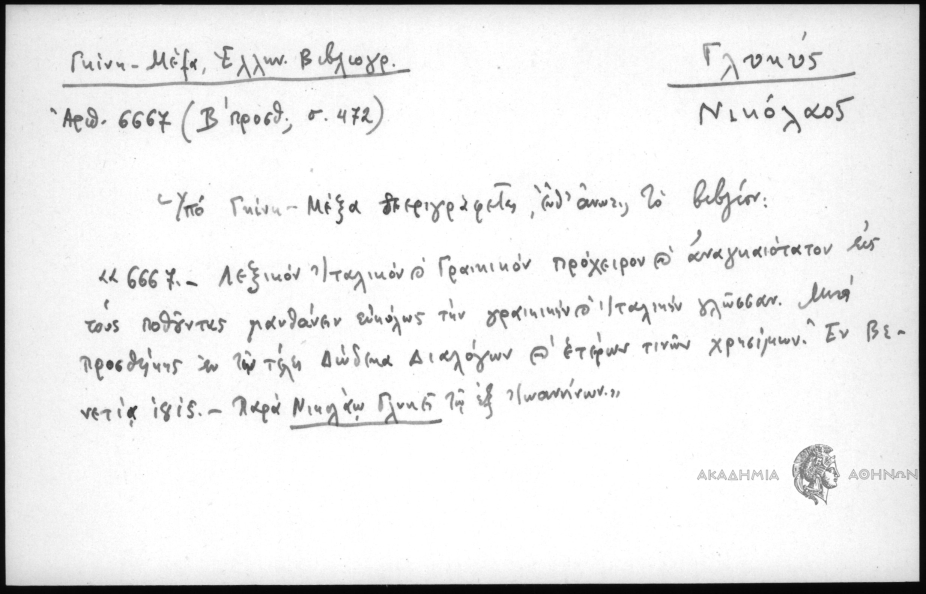 Γκίνη - Μέξα, Ἑλλην. Βιβλιογρ.
Γλυκύς
Νικόλαος
Ἀριθ. 6667 (Β' προσθ., σ. 472)
Ὑπό Γκίνη - Μέξα περιγράφεται, ἐνθ' ἀνωτ., τό βιβλίον:
«6667.- Λεξικόν Ἰταλικόν ϗ Γραικικόν πρόχειρον ϗ ἀναγκαιότατον εἰς
τούς ποθοῦντας μανθάνειν εὐκόλως τήν γραικικήν ϗ ἰταλικήν γλῶσσαν. Μετά
προσθήκης ἐν τῷ τέλει Δώδεκα Διαλόγων ϗ ἑτέρων τινῶν χρησίμων. Ἐν Βε-
νετίᾳ .- Παρά Νικολάῳ Γλυκεῖ τῷ ἐξ Ἰωαννίνων.»
ΑΚΑΔΗΜΙΑ ΑΘΗΝΩΝ